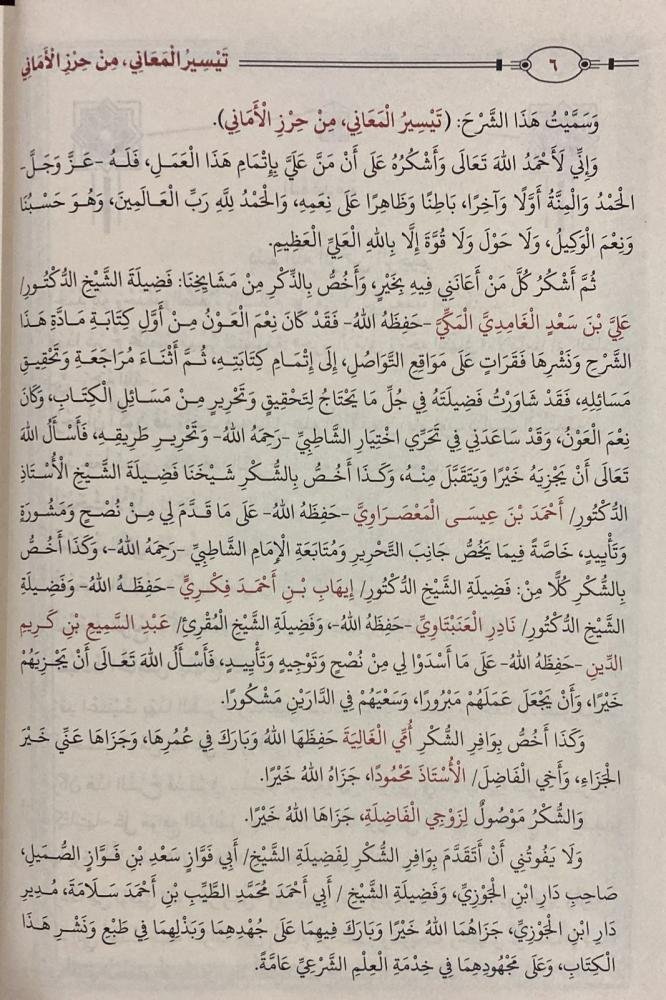 ٦
تَيْسِيرُ الْمَعَانِي، مِنْ حِرْزِ الْأَمَانِي
وَسَمَّيْتُ هَذَا الشَّرْحَ: (تَيْسِيرُ الْمَعَانِي، مِنْ حِرْزِ الْأَمَانِي).
وَإِنِّي لَأَحْمَدُ اللهَ تَعَالَى وَأَشْكُرُهُ عَلَى أَنْ مَنَّ عَلَيَّ بِإِتْمَامِ هَذَا الْعَمَلِ، فَلَهُ -عَزَّ وَجَلَّ-
الْحَمْدُ وَالْمِنَّةُ أَوَّلًا وَآخِرًا، بَاطِنًا وَظَاهِرًا عَلَى نِعَمِهِ، وَالْحَمْدُ لِلَّهِ رَبِّ الْعَالَمِينَ، وَهُوَ حَسْبُنَا
وَنِعْمَ الْوَكِيلُ، وَلَا حَوْلَ وَلَا قُوَّةَ إِلَّا بِاللهِ الْعَلِيِّ الْعَظِيمِ.
ثُمَّ أَشْكُرُ كُلَّ مَنْ أَعَانَنِي فِيهِ بِخَيْرٍ، وَأَخُصُّ بِالذِّكْرِ مِنْ مَشَايِخِنَا: فَضِيلَةَ الشَّيْخِ الدُّكْتُورِ/
عَلِيَّ بْنَ سَعْدٍ الْغَامِدِيَّ الْمَكِّيَّ -حَفِظَهُ اللهُ- فَقَدْ كَانَ نِعْمَ الْعَوْنُ مِنْ أَوَّلِ كِتَابَةِ مَادَّةِ هَذَا
الشَّرْحِ وَنَشْرِهَا فَقَرَاتٍ عَلَى مَوَاقِعِ التَّوَاصُلِ، إِلَى إِتْمَامِ كِتَابَتِهِ، ثُمَّ أَثْنَاءَ مُرَاجَعَةِ وَتَحْقِيقِ
مَسَائِلِهِ، فَقَدْ شَاوَرْتُ فَضِيلَتَهُ فِي جُلِّ مَا يَحْتَاجُ لِتَحْقِيقٍ وَتَحْرِيرٍ مِنْ مَسَائِلِ الْكِتَابِ، وَكَانَ
نِعْمَ الْعَوْنُ، وَقَدْ سَاعَدَنِي فِي تَحَرِّي اخْتِيَارِ الشَّاطِبِيِّ -رَحِمَهُ اللهُ- وَتَحْرِيرِ طَرِيقِهِ، فَأَسْأَلُ اللهَ
تَعَالَى أَنْ يَجْزِيَهُ خَيْرًا وَيَتَقَبَّلَ مِنْهُ، وَكَذَا أَخُصُّ بِالشُّكْرِ شَيْخَنَا فَضِيلَةَ الشَّيْخِ الْأُسْتَاذِ
الدُّكْتُورِ/ أَحْمَدَ بْنَ عِيسَى الْمَعْصَرَاوِيَّ -حَفِظَهُ اللهُ- عَلَى مَا قَدَّمَ لِي مِنْ نُصْحٍ وَمَشُورَةٍ
وَتَأْيِيدٍ، خَاصَّةً فِيمَا يَخُصُّ جَانِبَ التَّحْرِيرِ وَمُتَابَعَةَ الْإِمَامِ الشَّاطِبِيِّ -رَحِمَهُ اللهُ-، وَكَذَا أَخُصُّ
بِالشُّكْرِ كُلًّا مِنْ: فَضِيلَةِ الشَّيْخِ الدُّكْتُورِ/ إِيهَابِ بْنِ أَحْمَدَ فِكْرِيٍّ -حَفِظَهُ اللهُ- وَفَضِيلَةِ
الشَّيْخِ الدُّكْتُورِ/ نَادِرِ الْعَنَبْتَاوِيِّ -حَفِظَهُ اللهُ-، وَفَضِيلَةِ الشَّيْخِ الْمُقْرِئِ/ عَبْدِ السَّمِيعِ بْنِ كَرِيمِ
الدِّينِ -حَفِظَهُ اللهُ- عَلَى مَا أَسْدَوْا لِي مِنْ نُصْحٍ وَتَوْجِيهٍ وَتَأْيِيدٍ، فَأَسْأَلُ اللهَ تَعَالَى أَنْ يَجْزِيَهُمْ
خَيْرًا، وَأَنْ يَجْعَلَ عَمَلَهُمْ مَبْرُورًا، وَسَعْيَهُمْ فِي الدَّارَيْنِ مَشْكُورًا.
وَكَذَا أَخُصُّ بِوَافِرِ الشُّكْرِ أُمِّي الْغَالِيَةَ حَفِظَهَا اللهُ وَبَارَكَ فِي عُمُرِهَا، وَجَزَاهَا عَنِّي خَيْرَ
الْجَزَاءِ، وَأَخِي الْفَاضِلَ/ الْأُسْتَاذَ مَحْمُودًا، جَزَاهُ اللهُ خَيْرًا.
وَالشُّكْرُ مَوْصُولٌ لِزَوْجِي الْفَاضِلَةِ، جَزَاهَا اللهُ خَيْرًا.
وَلَا يَفُوتُنِي أَنْ أَتَقَدَّمَ بِوَافِرِ الشُّكْرِ لِفَضِيلَةِ الشَّيْخِ/ أَبِي فَوَّازٍ سَعْدِ بْنِ فَوَّازٍ الصُّمَيْلِ،
صَاحِبِ دَارِ ابْنِ الْجَوْزِيِّ، وَفَضِيلَةِ الشَّيْخِ / أَبِي أَحْمَدَ مُحَمَّدِ الطَّيِّبِ بْنِ أَحْمَدَ سَلَامَةَ، مُدِيرِ
دَارِ ابْنِ الْجَوْزِيِّ، جَزَاهُمَا اللهُ خَيْرًا وَبَارَكَ فِيهِمَا عَلَى جُهْدِهِمَا وَبَذْلِهِمَا فِي طَبْعِ وَنَشْرِ هَذَا
الْكِتَابِ، وَعَلَى مَجْهُودِهِمَا فِي خِدْمَةِ الْعِلْمِ الشَّرْعِيِّ عَامَّةً.